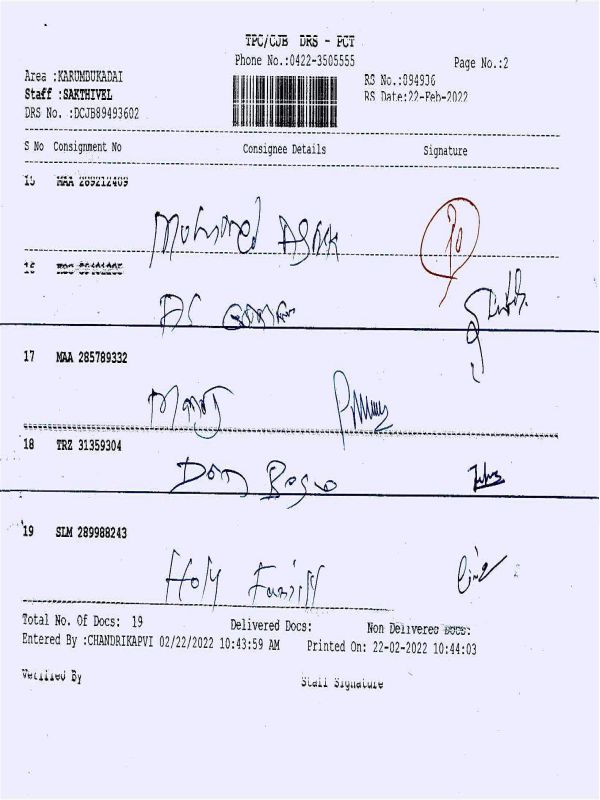 TPC/CJB DRS - PCT
Phone No.:0422-3505555
Page No.:2
Area :KARUMBUKADAI
RS No.:894936
Staff :SAKTHIVEL
RS Date:22-Feb-2022
DRS No. :DCJB89493602
S No Consignment No Consignee Details Signature
15 MAA 289212409
Mohamed
16
17 MAA 285789332
18 TRZ 31359304
Don Bosco
19 SLM 289988243
Holy Family
Total No. Of Docs: 19 Delivered Docs: Non Delivered Docs:
Entered By :CHANDRIKAPVI 02/22/2022 10:43:59 AM Printed On: 22-02-2022 10:44:03
Verified By Staff Signature